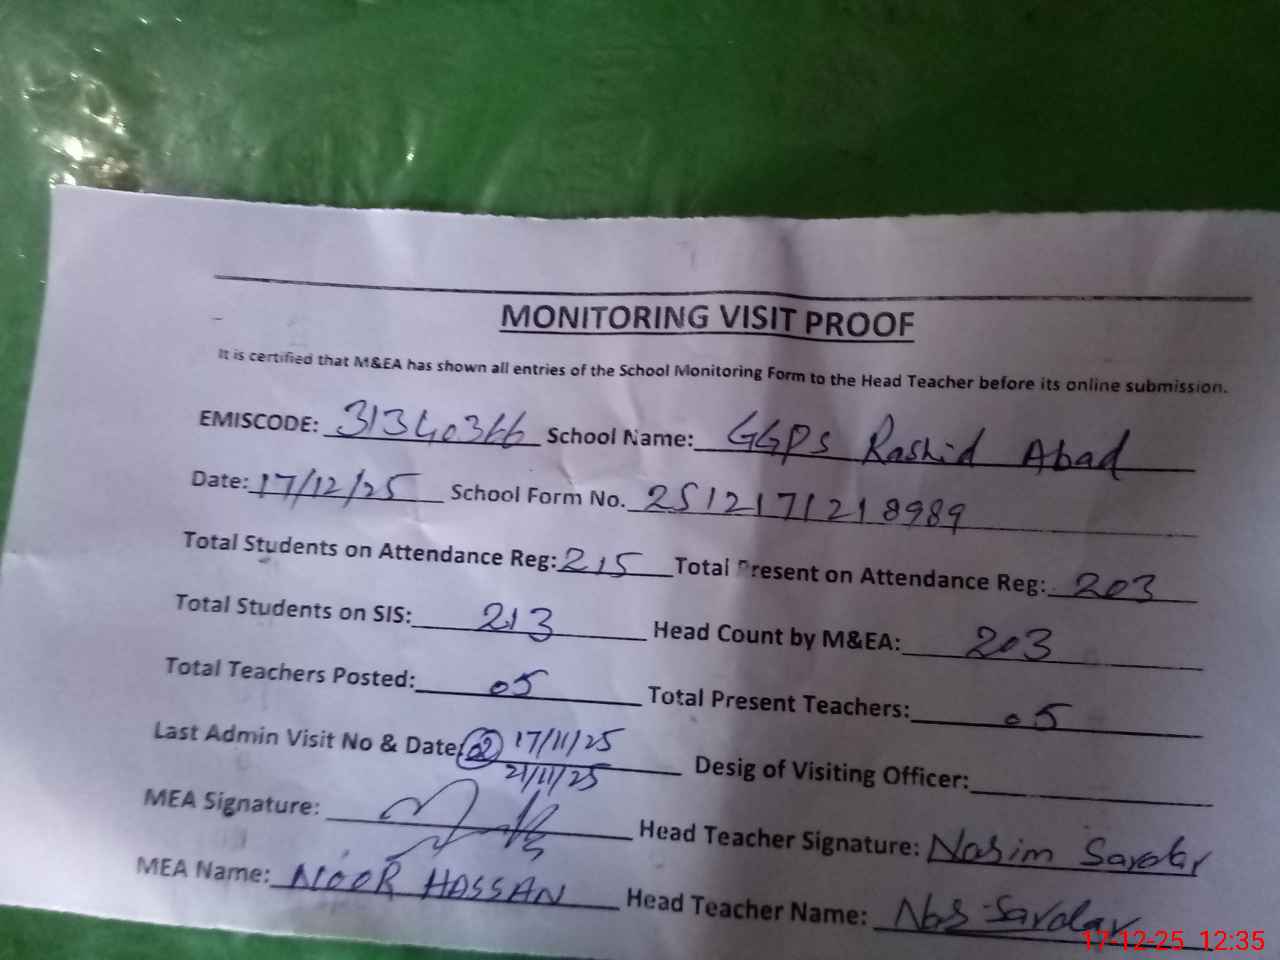 MONITORING VISIT PROOF
It is certified that M&EA has shown all entries of the School Monitoring Form to the Head Teacher before its online submission.
EMISCODE: 31340366 School Name: GGPS Rashid Abad
Date: 17/12/25 School Form No. 2512171218989
Total Students on Attendance Reg: 215 Total Present on Attendance Reg: 203
Total Students on SIS: 213 Head Count by M&EA: 203
Total Teachers Posted: 05 Total Present Teachers: 05
Last Admin Visit No & Date: 02 17/11/25
21/11/25 Desig of Visiting Officer:
MEA Signature: Head Teacher Signature: Nasim
MEA Name: NOOR HASSAN Head Teacher Name:
17-12-25 12:35